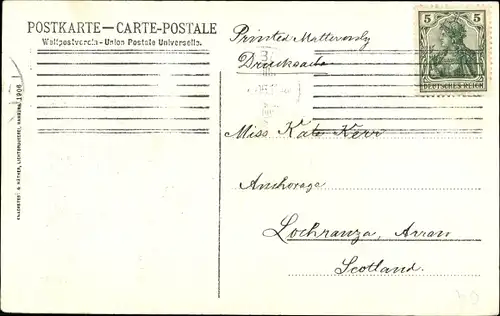 POSTKARTE — CARTE-POSTALE
Weltpostverein - Union Postale Universelle.
Printed Matter only
Drucksache
5 5
DEUTSCHES REICH
Miss Kate Kerr
Anchorage
Lochranza, Arran
Scotland.